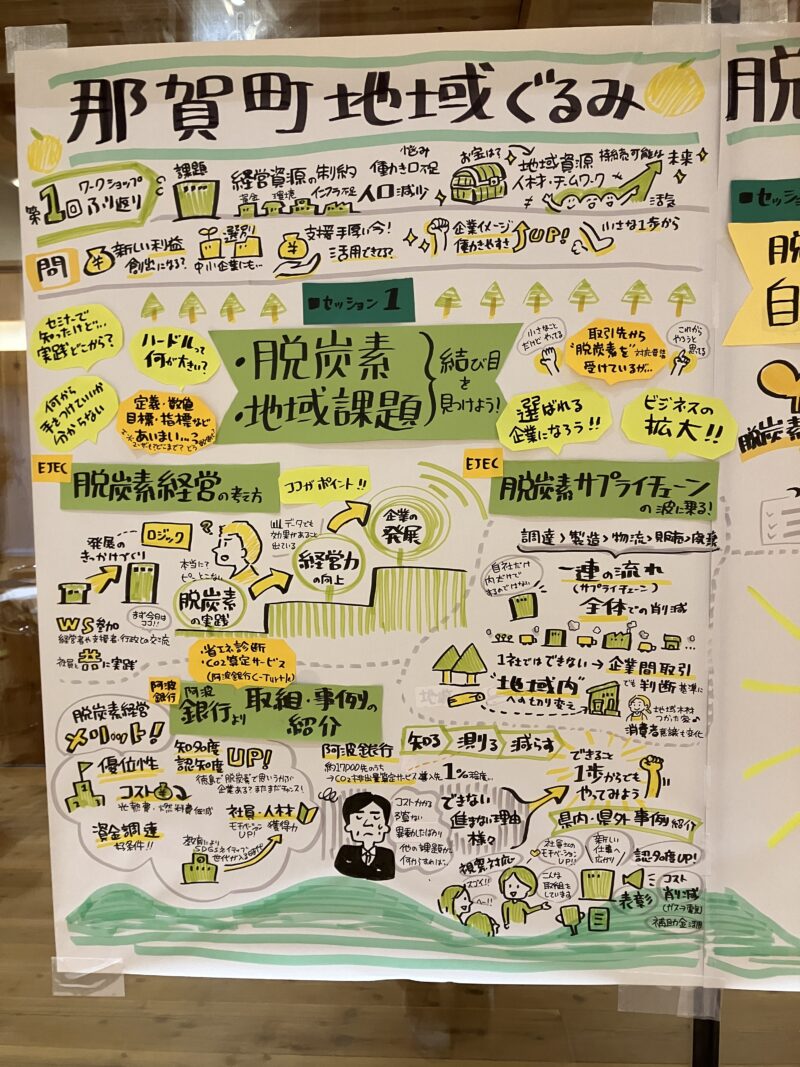 那賀町地域ぐるみ
脱
第1回
ワークショップ
ふり返り
課題
経営資源の制約
資金 環境
悩み
働き口不足
インフラ不足
人口減少
お宝は?
地域資源
人材・チームワーク
持続可能な
未来
活気
問
新しい利益
創出になる?
選別
中小企業にも…
支援手厚い今!
活用できてる?
企業イメージ
働きやすさ
UP!
小さな1歩から
■セッション1
■セッション
セミナーで
知ったけど…
実践どこから?
ハードルって
何が大きい?
何から
手をつけていいか
分からない
定義・数値
目標・指標など
あいまい…?
・脱炭素
・地域課題
結び目
を
見つけよう!
小さなこと
だけどやってる
取引先から
"脱炭素を"対応要請
受けているが…
これから
やろうと思ってる
選ばれる
企業になろう!!
ビジネスの
拡大!!
EJEC
脱炭素経営の考え方
ココがポイント!!
発展の
きっかけづくり
ロジック
本当に?
ピンとこない
データでも
効果があること
出ている
企業の
発展
経営力
の向上
脱炭素
の実践
まず今日は
ココ!!
WS参加
経営者や支援者・行政との交流
社員と共に実践
・省エネ診断
・CO2算定サービス
(阿波銀行C-Turtle)
EJEC
脱炭素サプライチェーン
の波に乗る!
調達>製造>物流>販売>廃棄
自社だけ
内だけで
するのではない
一連の流れ
(サプライチェーン)
全体での削減
1社ではできない→企業間取引
でも判断基準に
"地域内"
への切り変え
地域木材
つかった家
消費者意識も変化
阿波
銀行
阿波
銀行より
取組・事例の
紹介
脱炭素経営
メリット!
優位性
知名度
認知度
UP!
徳島で"脱炭素"で思いうかぶ
企業ある?まだまだチャンス!
コスト
光熱費・燃料費低減
資金調達
好条件!!
社員・人材
モチベーション
UP!
獲得力
教育により
SDGsネイティブ
世代が入る時代
阿波銀行
約17000先のうち
→CO2排出量算定サービス導入先
1%程度…
知る>測る>減らす
コストかかる
異動したばかり
他の課題が
できない
進まない理由
様々
できること
1歩からでも
やってみよう
県内・県外事例紹介
視察対応
スゴイ!!
へぇ~!!
社員さんの
モチベーションUP!!
こんな
取組を
しています
新しい
仕事へ
広がり
認知度UP!
表彰
コスト
削減
補助金活用
脱炭素